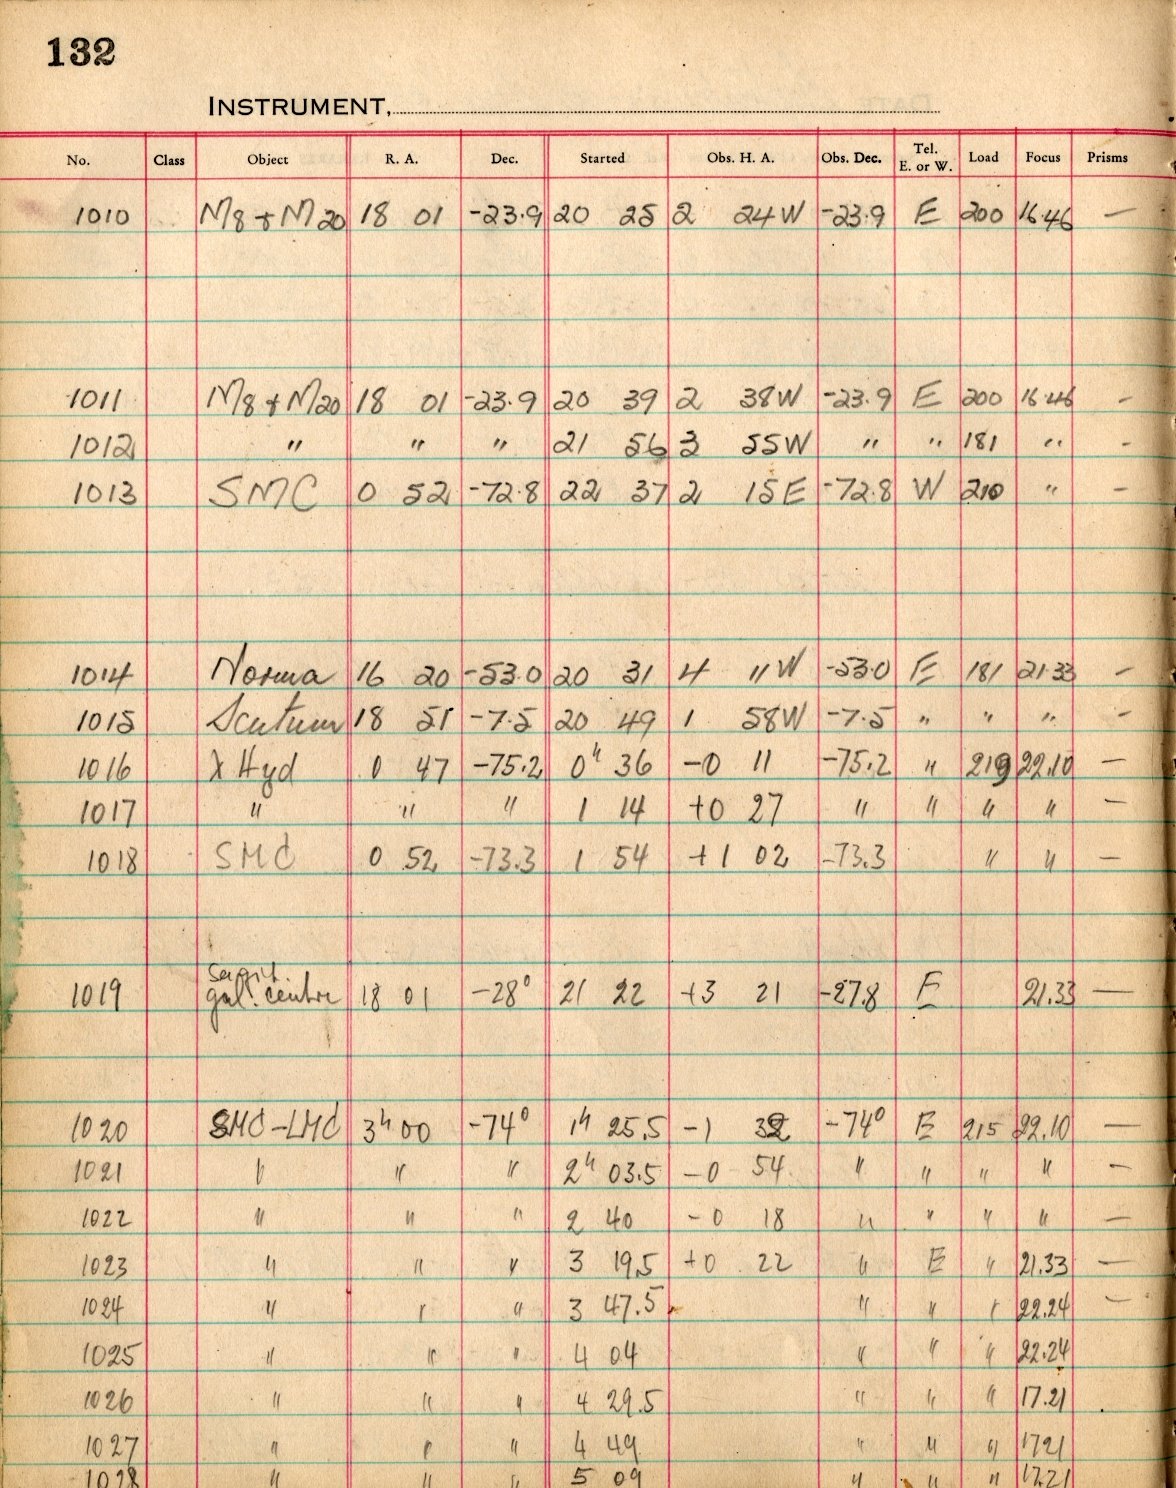 132
INSTRUMENT,
No. Class Object R. A. Dec. Started Obs. H. A. Obs. Dec. Tel. E. or W. Load Focus Prisms
1010 M8 + M20 18 01 -23.9 20 25 2 24W -23.9 E 200 16.46 —
1011 M8 + M20 18 01 -23.9 20 39 2 38W -23.9 E 200 16.46 -
1012 " " " 21 56 3 55W " " 181 " -
1013 SMC 0 52 -72.8 22 37 2 15E -72.8 W 210 " -
1014 Norma 16 20 -53.0 20 31 4 11W -53.0 E 181 21.33 -
1015 Scutum 18 51 -7.5 20 49 1 58W -7.5 " " " -
1016 λ Hyd 0 47 -75.2 0h 36 -0 11 -75.2 " 219 22.10 —
1017 " " " 1 14 +0 27 " " " " —
1018 SMC 0 52 -73.3 1 54 +1 02 -73.3 " " —
Sagit.
1019 gal. centre 18 01 -28° 21 22 +3 21 -27.8 E 21.33 —
1020 SMC-LMC 3h 00 -74° 1h 25.5 -1 32 -74° E 215 22.10 —
1021 " " " 2h 03.5 -0 54 " " " " —
1022 " " " 2 40 -0 18 " " " " —
1023 " " " 3 19.5 +0 22 " E " 21.33 —
1024 " " " 3 47.5 " " " 22.24 —
1025 " " " 4 04 " " " 22.24
1026 " " " 4 29.5 " " " 17.21
1027 " " " 4 49 " " " 1721
1028 " " " 5 09 " " " 17.21